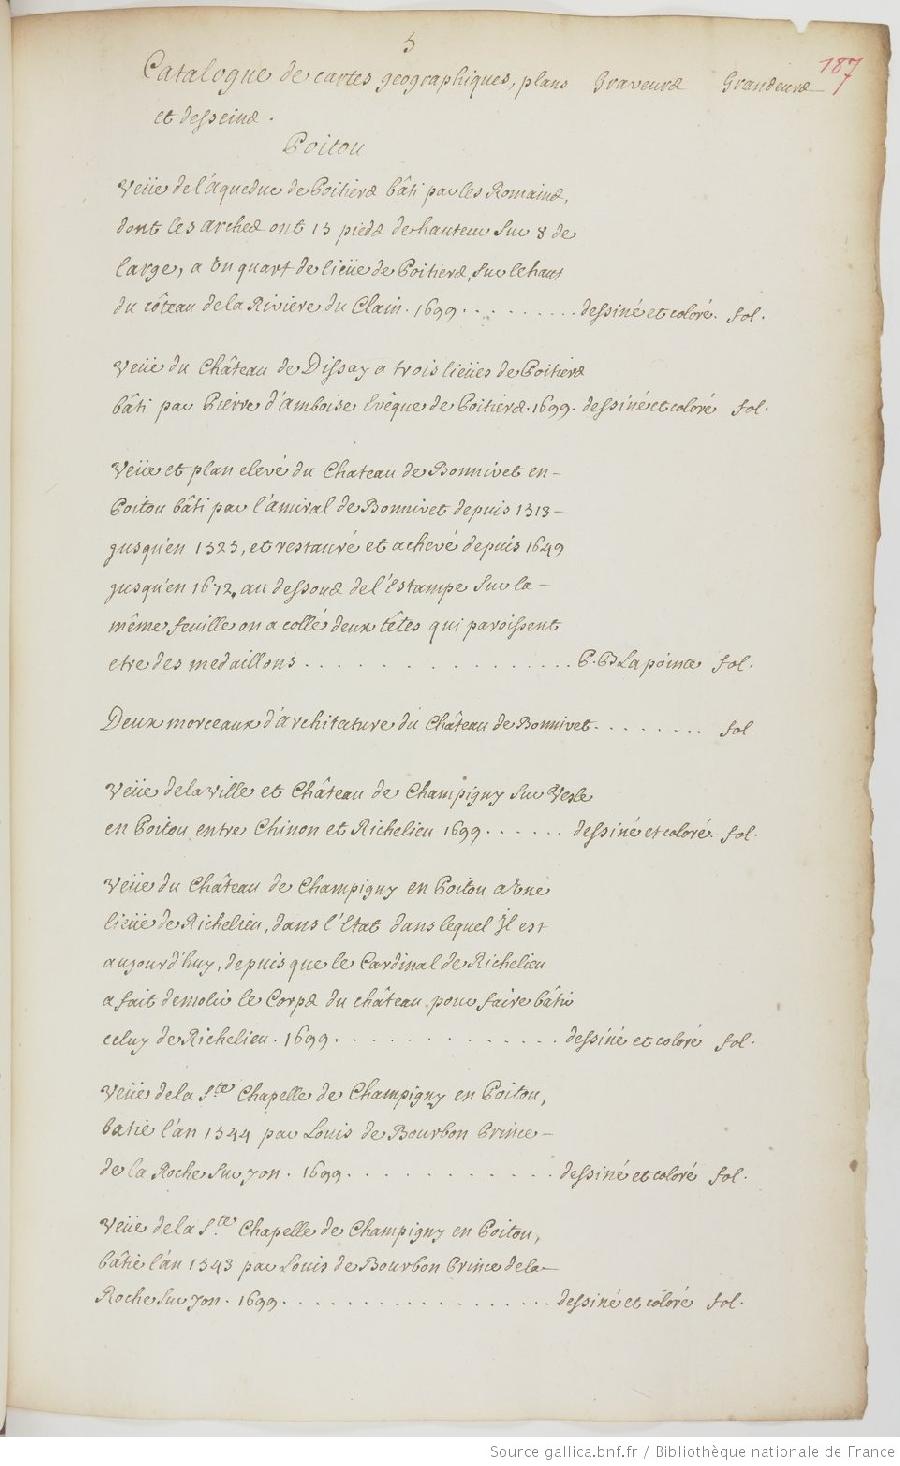 5
187
Catalogue de cartes geographiques, plans Graveurs Grandeurs
et desseins.
Poitou
Veüe de l'aqueduc de Poitiers bâti par les Romains,
dont les arches ont 15 pieds de hauteur sur 8 de
large, a un quart de lieüe de Poitiers, sur le haut
du côteau de la Riviere du Clain. 1699 . . . . . . . . . dessiné et coloré. fol.
Veüe du Château de Dissay a trois lieües de Poitiers
bâti par Pierre d'Amboise Evêque de Poitiers. 1699. dessiné et coloré fol.
Veüe et plan elevé du Chateau de Bonnivet en-
Poitou bâti par l'amiral de Bonnivet depuis 1513-
jusqu'en 1525, et restauré et achevé depuis 1649
jusqu'en 1672, au dessous de l'Estampe sur la-
même feuille on a collé deux têtes qui paroissent
etre des medaillons . . . . . . . . . . . . . . . . P. Lapointe fol.
Deux morceaux d'architature du Château de Bonnivet. . . . . . . . fol
Veüe de la ville et Château de Champigny sur Vesle
en Poitou entre Chinon et Richelieu 1699 . . . . . . dessiné et coloré fol.
Veüe du Château de Champigny en Poitou a une
lieüe de Richelieu, dans l'Etat dans lequel Il est
aujourd'huy, depuis que le Cardinal de Richelieu
a fait demolir le Corps du château pour faire bâtir
celuy de Richelieu. 1699 . . . . . . . . . . . . . . dessiné et coloré fol.
Veüe de la Ste Chapelle de Champigny en Poitou,
batie l'an 1544 par Louis de Bourbon Prince-
de la Roche sur yon. 1699 . . . . . . . . . . . . dessiné et coloré fol.
Veüe de la Ste Chapelle de Champigny en Poitou,
bâtie l'an 1543 par Louis de Bourbon Prince de la-
Roche sur yon. 1699 . . . . . . . . . . . . . . . . . dessiné et coloré fol.
Source gallica.bnf.fr / Bibliothèque nationale de France